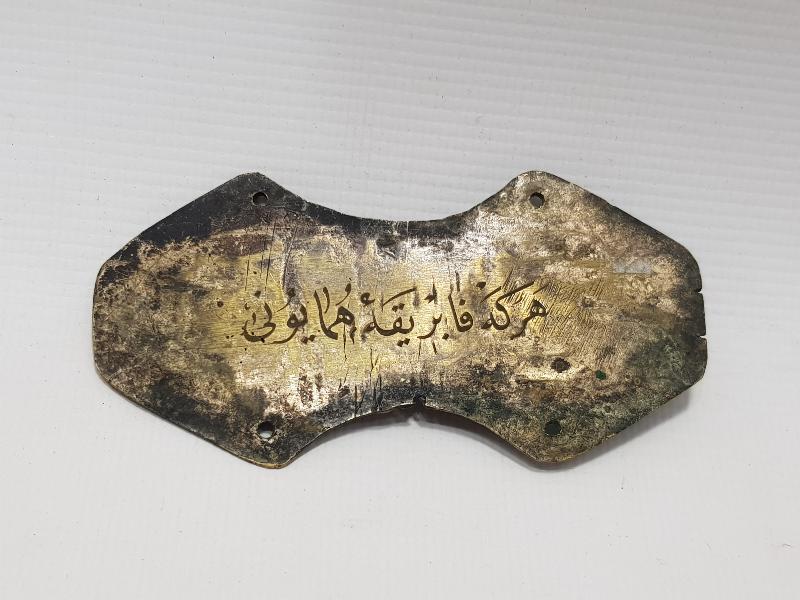 هَركَه فابْریقَهٔ هُمایوُنی